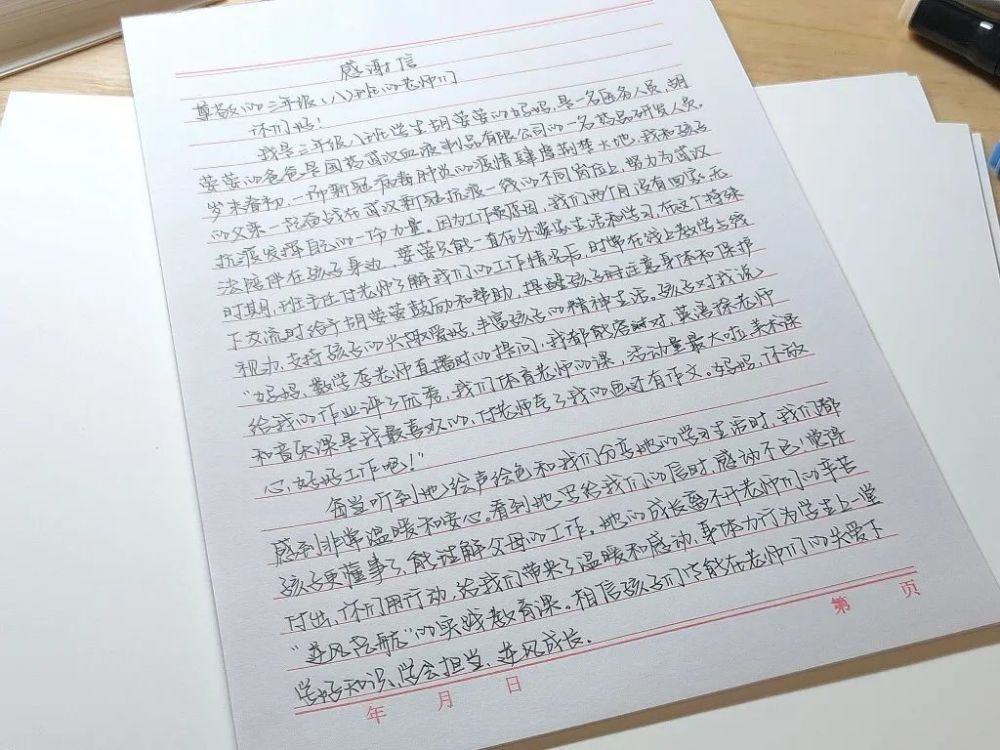 感谢信
尊敬的三年级(八)班的老师们
你们好！
我是三年级八班学生胡蓥蓥的妈妈,是一名医务人员,胡
蓥蓥的爸爸是国药武汉血液制品有限公司的一名药品研发人员。
岁末春初,一场新冠病毒肺炎的疫情肆虐荆楚大地,我和孩子
的父亲一起奋战在武汉新冠抗疫一线的不同岗位上,努力为武汉
抗疫发挥自己的一份力量。因为工作原因,我们两个月没有回家,无
法陪伴在孩子身边,蓥蓥只能一直在外婆家生活和学习,在这个特殊
时期,班主任付老师了解我们的工作情况后,时常在线上教学与线
下交流时给予胡蓥蓥鼓励和帮助,提醒孩子时注意身体和保护
视力,支持孩子的兴趣爱好,丰富孩子的精神生活。孩子对我说:
“妈妈,数学李老师直播时的提问,我都能答对,英语徐老师
给我的作业评了优秀,我们体育老师的课,活动量最大啦,美术课
和音乐课是我最喜欢的,付老师夸了我的画还有作文。妈妈,你放
心,好好工作吧！”
每当听到她绘声绘色和我们分享她的学习生活时,我们都
感到非常温暖和安心。看到她写给我们的信时,感动不已,觉得
孩子更懂事了,能理解父母的工作。她的成长离不开老师们的辛苦
付出,你们用行动,给我们带来了温暖和感动,身体力行为学生上一堂
“逆风启航”的实践教育课。相信孩子们能在老师们的关爱下
学好知识,学会担当,逆风成长.
第 页
年 月 日